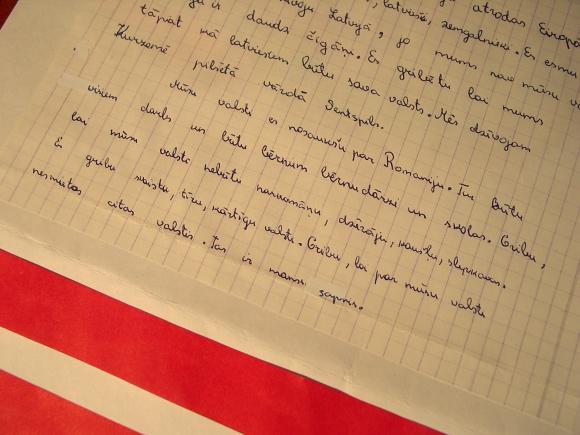 atrodas Eiropā
, latvieši, zemgalnieki. Es esmu
ir daudz čigāni. Es gribētu lai mums
tāpat kā latviešiem būtu sava valsts. Mēs dzīvojam
Kurzemē pilsētā vārdā Ventspils.
Mūsu valsti es nosauktu par Romaniju. Tur būtu
visiem darbs un būtu bērnum bērnudārzi un skolas. Gribu,
lai mūsu valstī nebūtu narkomānu, dzērāju, kausļu, slepkavas.
Es gribu skaistu, tīru, kārtīgu valsti. Gribu, lai par mūsu valsti
nesmietos citas valstis. Tas ir mans sapnis.